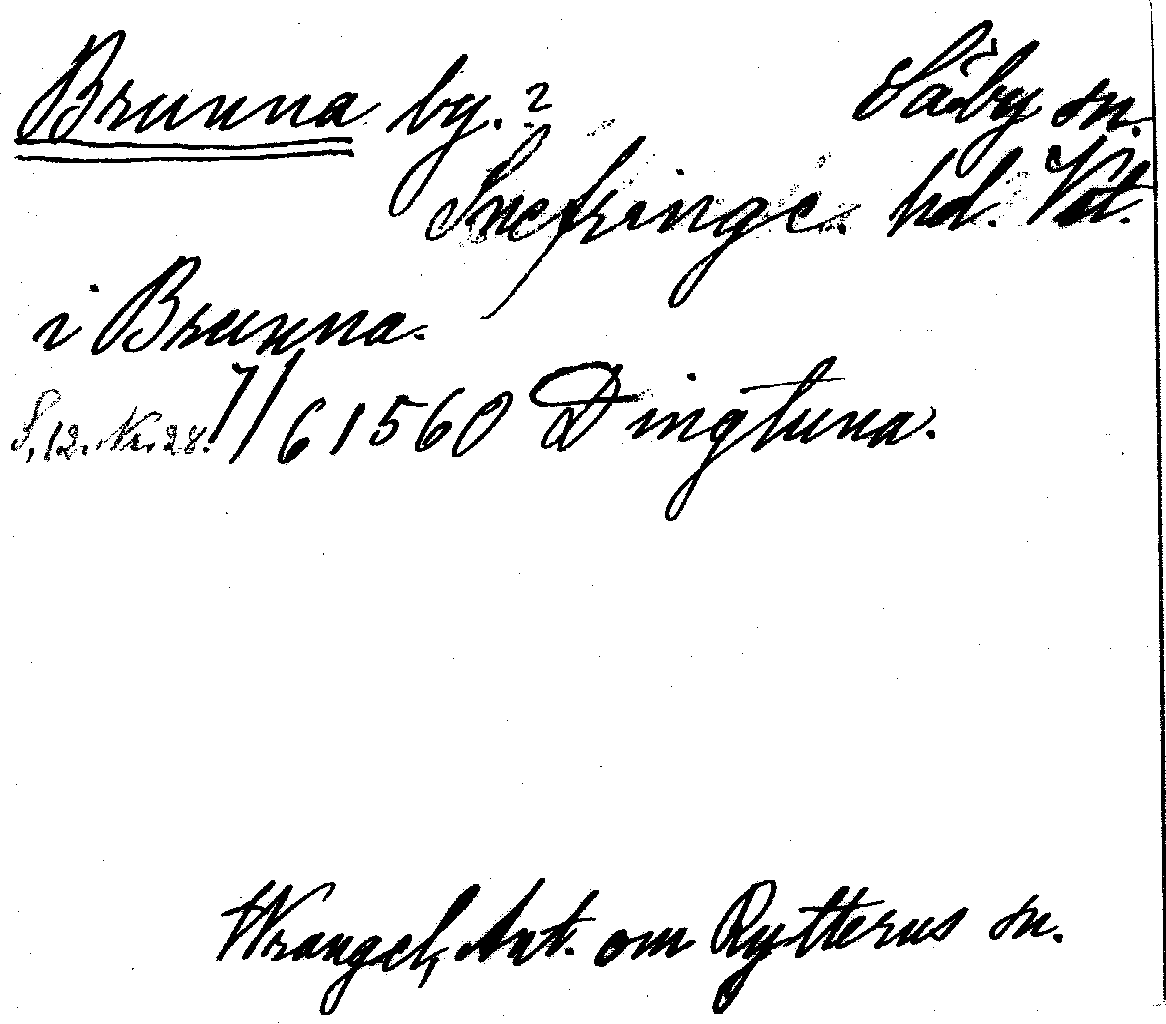 Brunna by.? Säby sn.
Snefringe hd. Vstl.
i Brunna.
S. 12. Nr. 28. 7/6 1560 Dingtuna.
Wrangel, Ant. om Rytterns sn.